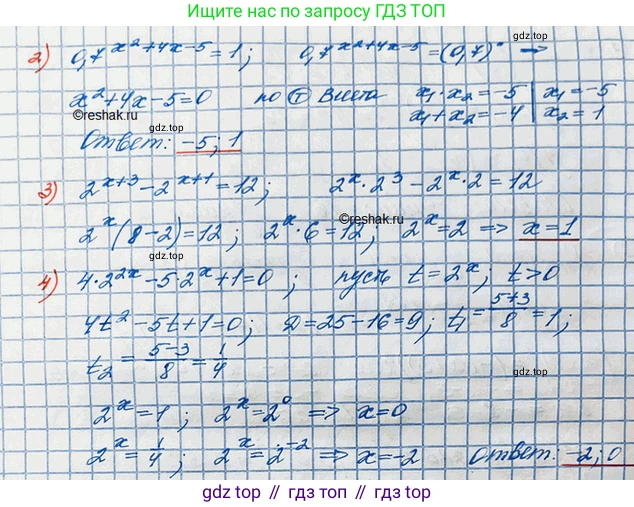 Ищите нас по запросу ГДЗ ТОП
2) 0,7^(x²+4x-5) = 1; 0,7^(x²+4x-5) = (0,7)° →
x²+4x-5=0 по Ⓣ Виета x₁·x₂=-5 | x₁=-5
x₁+x₂=-4 | x₂=1
©reshak.ru
gdz.top
Ответ: -5; 1
3) 2^(x+3) - 2^(x+1) = 12; 2^x·2³ - 2^x·2 = 12
©reshak.ru
2^x(8-2)=12; 2^x·6=12; 2^x=2 => x=1
gdz.top
4) 4·2^(2x) - 5·2^x + 1 = 0; пусть t=2^x; t>0
4t²-5t+1=0; D=25-16=9; t₁=(5+3)/8=1;
t₂=(5-3)/8=1/4
gdz.top
2^x=1; 2^x=2⁰ => x=0
2^x=1/4; 2^x=2^(-2) => x=-2 Ответ: -2; 0
gdz.top
gdz top // гдз топ // gdz top